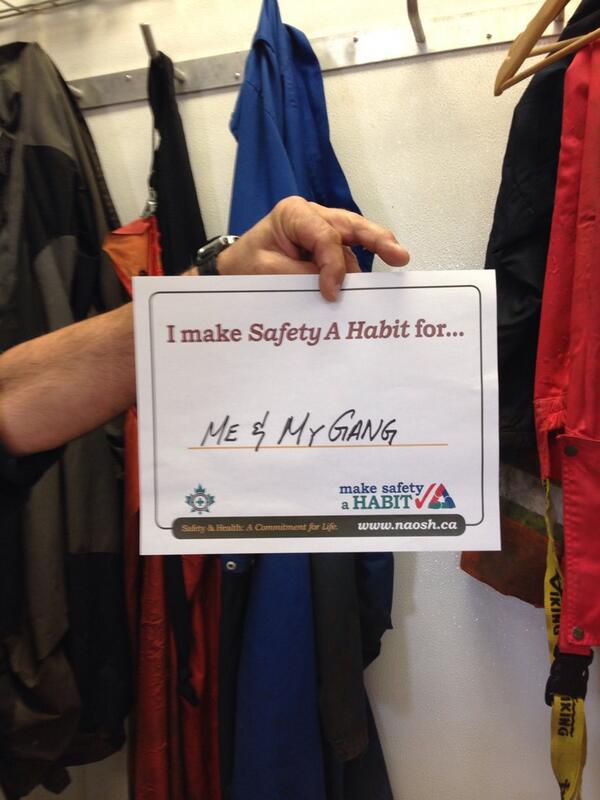 I make Safety A Habit for...
ME & MY GANG
make safety
a HABIT
Safety & Health: A Commitment for Life.
www.naosh.ca
VIKING
VIKING